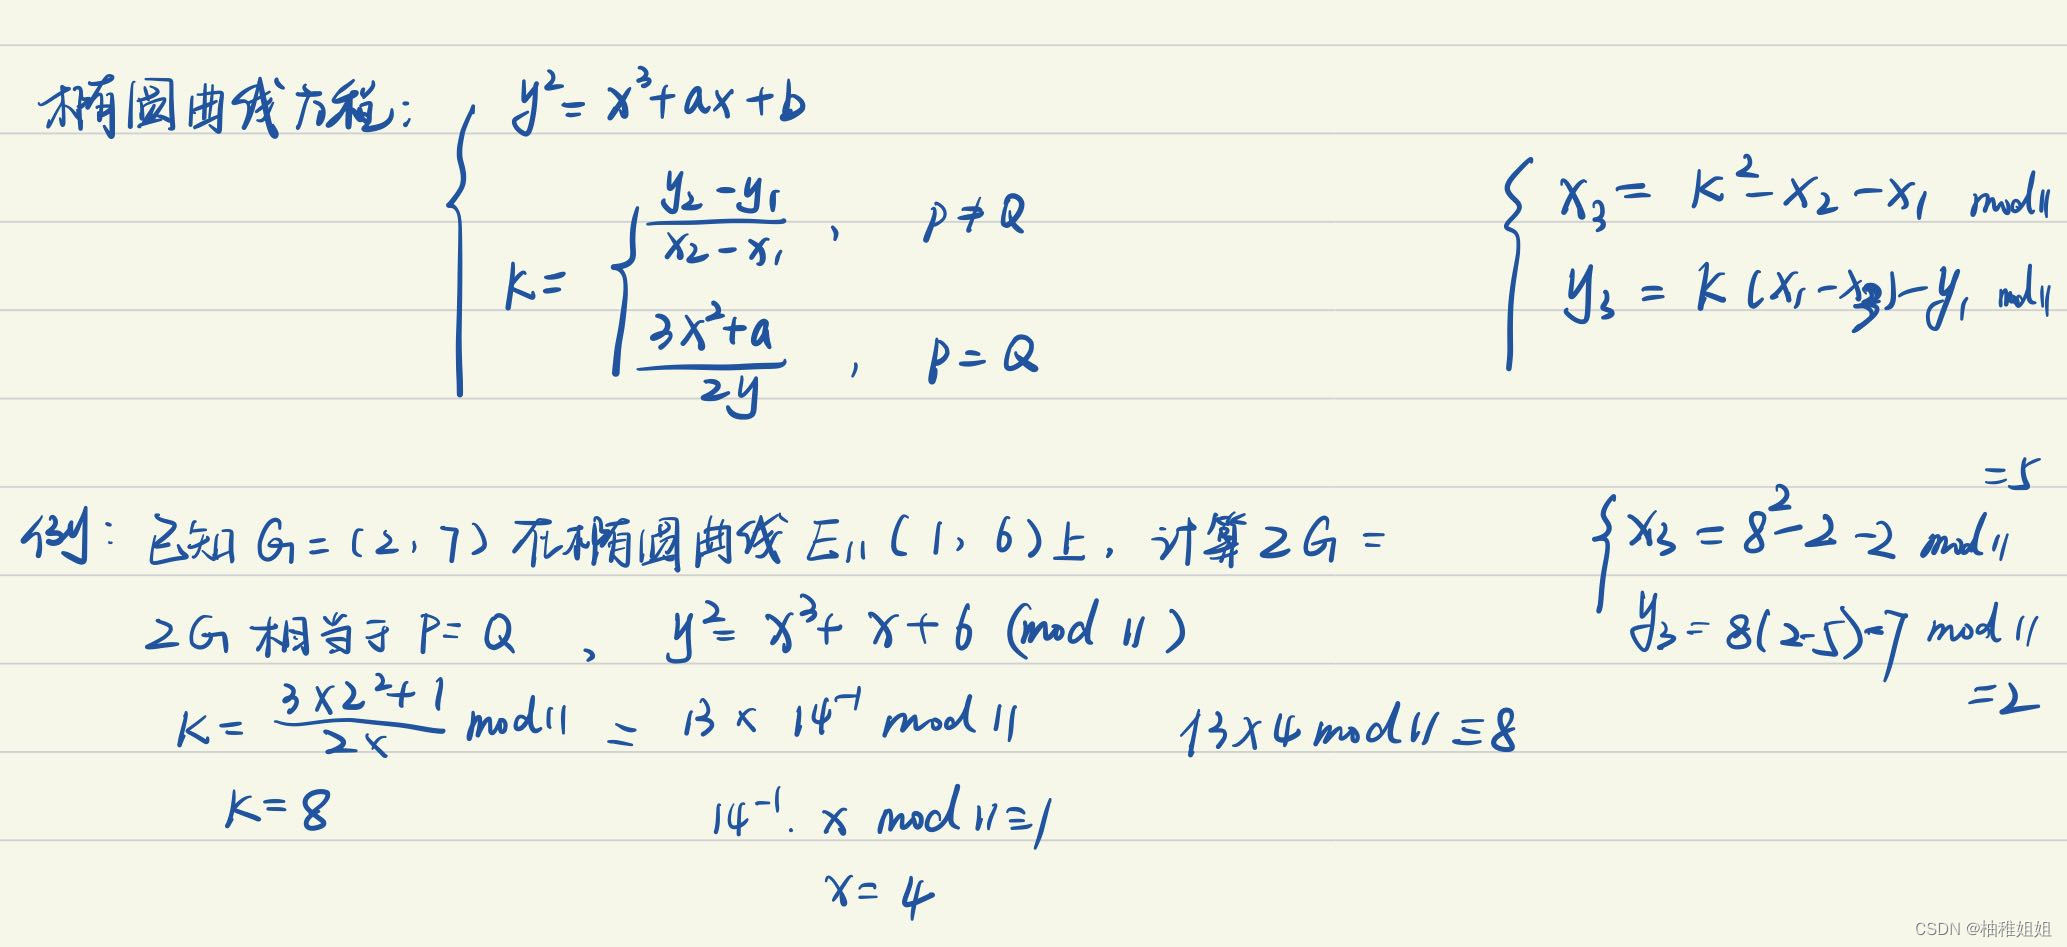 椭圆曲线方程: y² = x³ + ax + b
k = { (y₂ - y₁)/(x₂ - x₁) , p ≠ Q
(3x² + a)/(2y) , p = Q
x₃ = k² - x₂ - x₁ mod 11
y₃ = k(x₁ - x₃) - y₁ mod 11
例: 已知 G = (2, 7) 在椭圆曲线 E₁₁(1, 6)上, 计算 2G =
2G 相当于 P = Q , y² = x³ + x + 6 (mod 11)
k = (3×2² + 1)/(2×) mod 11 = 13 × 14⁻¹ mod 11
13×4 mod 11 ≡ 8
k = 8
14⁻¹. x mod 11 ≡ 1
x = 4
x₃ = 8² - 2 - 2 mod 11 = 5
y₃ = 8(2-5) - 7 mod 11
= 2
CSDN @柚稚姐姐